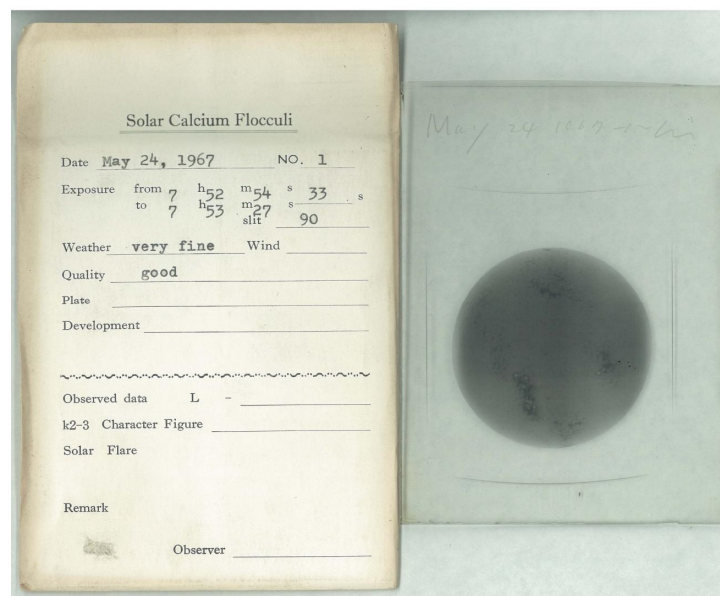 Solar Calcium Flocculi
Date May 24, 1967 NO. 1
Exposure from 7 h 52 m 54 s 33 s
to 7 h 53 m 27 s
slit 90
Weather very fine Wind
Quality good
Plate
Development
Observed data L -
k2-3 Character Figure
Solar Flare
Remark
Observer
May 24